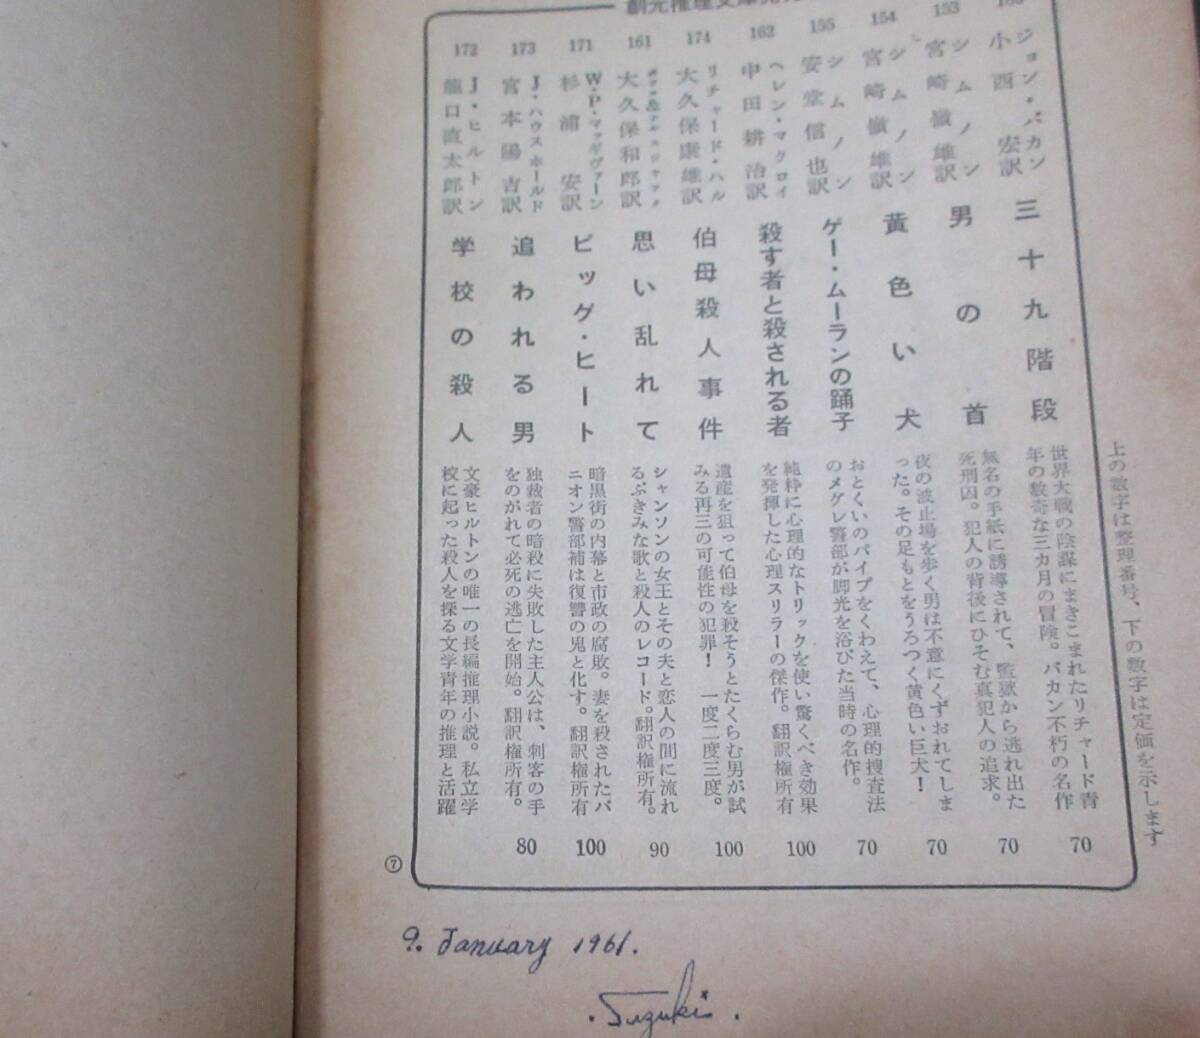 上の数字は整理番号、下の数字は定価を示します
ジョン・バカン
小西宏訳
三十九階段
世界大戦の陰謀にまきこまれたリチャード青
年の数奇な三カ月の冒険。バカン不朽の名作
70
153
シムノン
宮崎嶺雄訳
男の首
無名の手紙に誘導されて、監獄から逃れ出た
死刑囚。犯人の背後にひそむ真犯人の追求。
70
154
シムノン
宮崎嶺雄訳
黄色い犬
夜の波止場を歩く男は不意にくずおれてしま
った。その足もとをうろつく黄色い巨犬！
70
155
シムノン
安堂信也訳
ゲー・ムーランの踊子
おとくいのパイプをくわえて、心理的捜査法
のメグレ警部が脚光を浴びた当時の名作。
70
162
ヘレン・マクロイ
中田耕治訳
殺す者と殺される者
純粋に心理的なトリックを使い驚くべき効果
を発揮した心理スリラーの傑作。翻訳権所有
100
174
リチャード・ハル
大久保康雄訳
伯母殺人事件
遺産を狙って伯母を殺そうとたくらむ男が試
みる再三の可能性の犯罪！　一度二度三度。
100
161
大久保和郎訳
思い乱れて
シャンソンの女王とその夫と恋人の間に流れ
るぶきみな歌と殺人のレコード。翻訳権所有。
90
171
W・P・マッギヴァーン
杉浦安訳
ビッグ・ヒート
暗黒街の内幕と市政の腐敗。妻を殺されたバ
ニオン警部補は復讐の鬼と化す。翻訳権所有
100
173
J・ハウスホールド
宮本陽吉訳
追われる男
独裁者の暗殺に失敗した主人公は、刺客の手
をのがれて必死の逃亡を開始。翻訳権所有。
80
172
J・ヒルトン
龍口直太郎訳
学校の殺人
文豪ヒルトンの唯一の長編推理小説。私立学
校に起った殺人を探る文学青年の推理と活躍
⑦
9. January 1961.
. Suzuki .